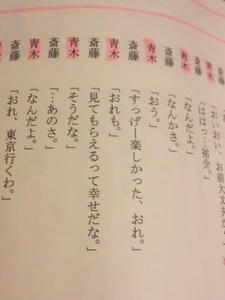 斎藤「おいおい、お前大丈夫か
青木「ははっ…祐介。」
斎藤「なんだよ。」
青木「なんかさ。」
斎藤「おう。」
青木「すっげー楽しかった、おれ。」
斎藤「おれも。」
青木「見てもらえるって幸せだな。」
斎藤「そうだな。」
青木「…あのさ。」
斎藤「なんだよ。」
青木「おれ、東京行くわ。」
斎藤